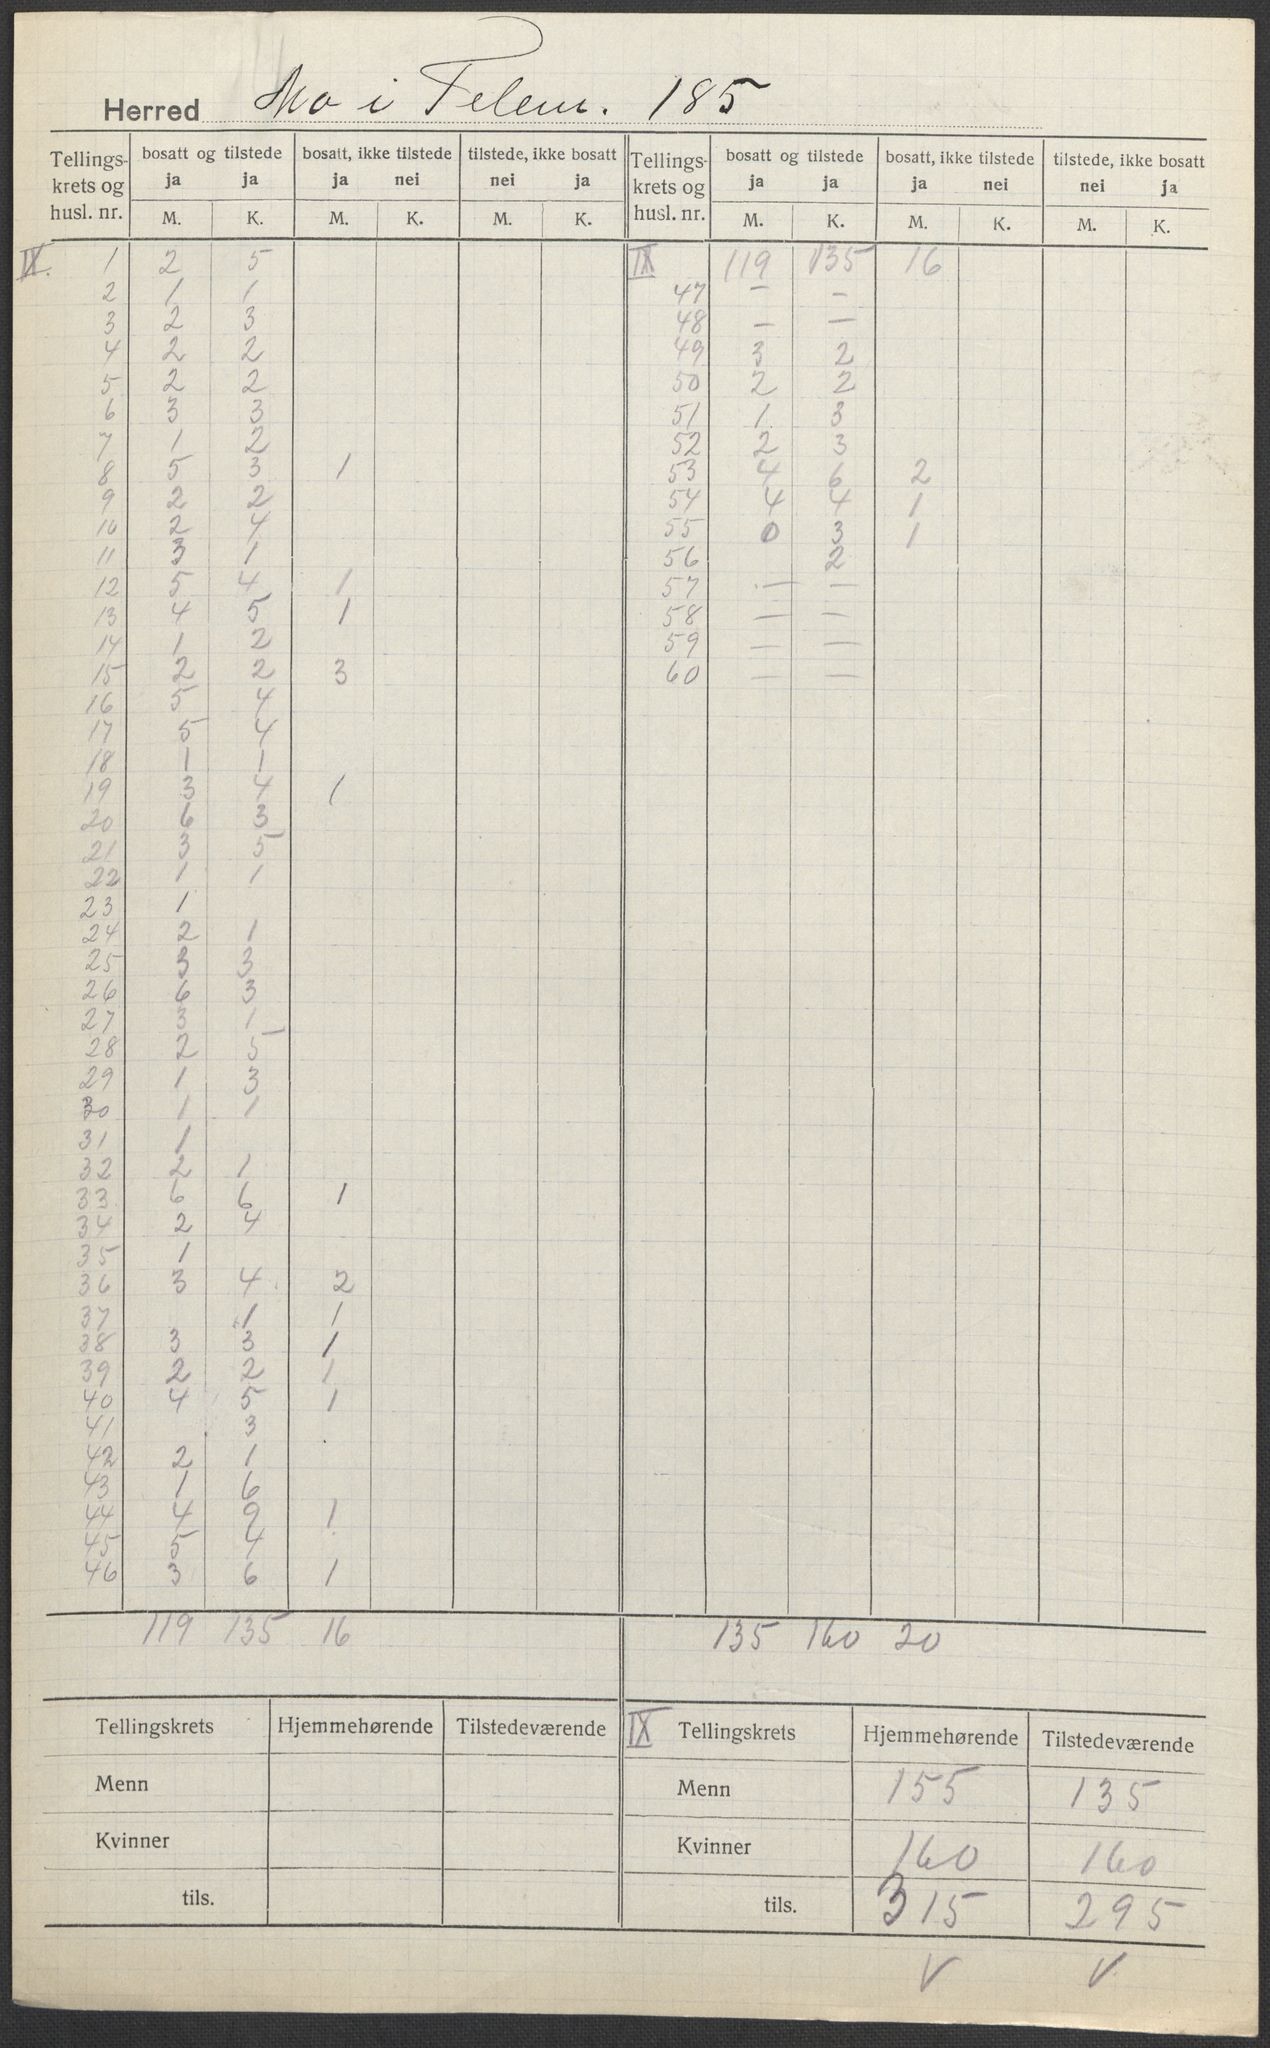 Herred Mo i Telem. 185
Tellings-krets og husl. nr. | bosatt og tilstede ja ja | bosatt, ikke tilstede ja nei | tilstede, ikke bosatt nei ja | Tellings-krets og husl. nr. | bosatt og tilstede ja ja | bosatt, ikke tilstede ja nei | tilstede, ikke bosatt nei ja
M. K. M. K. M. K. M. K. M. K. M. K.
IX. 1 2 5
2 1 1
3 2 3
4 2 2
5 2 2
6 3 3
7 1 2
8 5 3 1
9 2 2
10 2 4
11 3 1
12 5 4 1
13 4 5 1
14 1 2
15 2 2 3
16 5 4
17 5 4
18 1 1
19 3 4 1
20 6 3
21 3 5
22 1 1
23 1
24 2 1
25 3 3
26 6 3
27 3 1
28 2 5
29 1 3
30 1 1
31 1
32 2 1
33 6 6 1
34 2 4
35 1
36 3 4 2
37 1 1
38 3 3 1
39 2 2 1
40 4 5 1
41 3
42 2 1
43 1 6
44 4 2 1
45 5 4
46 3 6 1
119 135 16
IX 119 135 16
47 — —
48 — —
49 3 2
50 2 2
51 1 3
52 2 3
53 4 6 2
54 4 4 1
55 0 3 1
56 2
57 — —
58 — —
59 — —
60 — —
135 160 20
Tellingskrets Hjemmehørende Tilstedeværende
Menn
Kvinner
tils.
IX Tellingskrets Hjemmehørende Tilstedeværende
Menn 155 135
Kvinner 160 160
tils. 315 295
V V